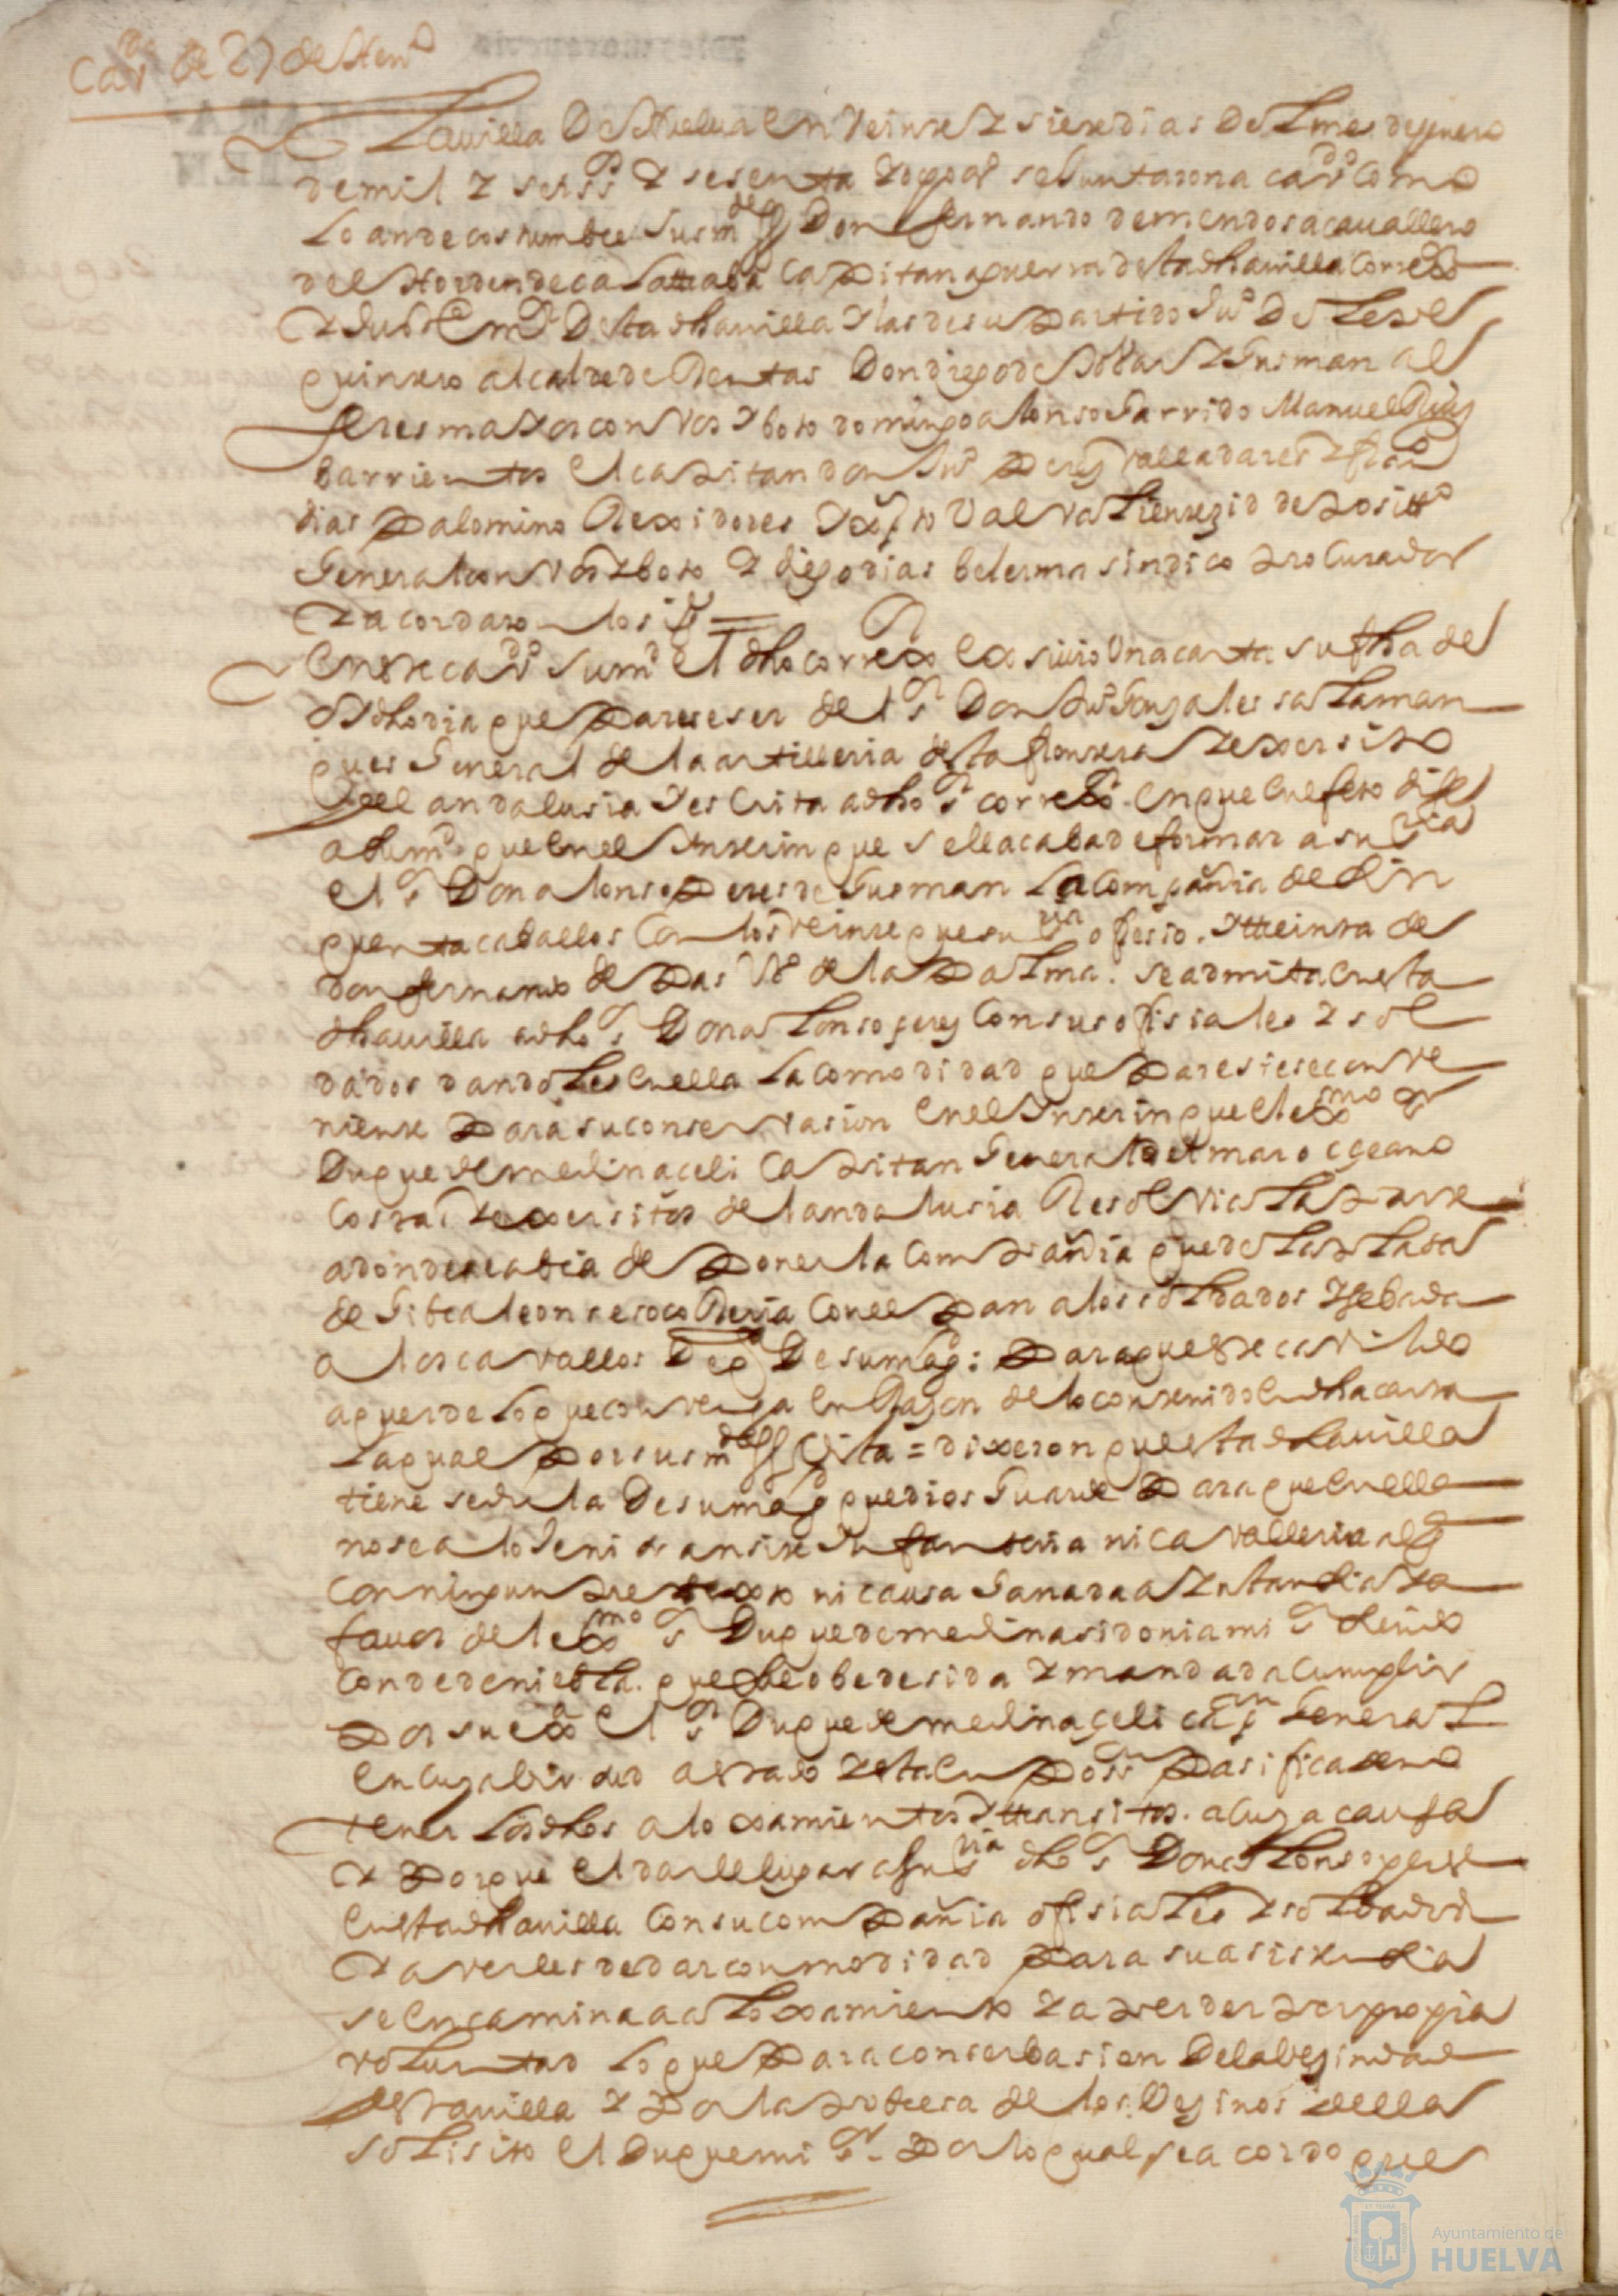 Cavdo de 27 de Hen.o
La uilla De Huelua En Veinte Y siete dias Del mes de henero
de mil Y seissos Y sesenta Y ocho as se Juntaron a cavdo Como
lo an de costumbre Sus mdes Don fernando de mendosa cauallero
del Horden de calattraba Capitan a guerra desta dha uilla Correxor
Y Juo De Desta dha uilla Y las de su Partido Juo De
quintero alcalde de Rentas Don diego de Gusman al
feres maior con Vos Y boto domingo alonso Garrido Manuel Ruis
barrientos El capitan don Juo Peres Valladares Y franco
dias Palomino Rexidores Y xptto Val depositto
General con Vos Y boto Y diego dias belerma sindico Procurador
Y acordaron lo sigte =
En este cavdo su md El dho correxor Exsiuio Una carta su fha del
dho dia que Parese ser del sr Don Juo Gonzales salaman
ques General de la artilleria desta frontera Y exersito
del andalusia Y escrita a dho sr correxor. En que En efeto dise
a su md que En el Interin que se le acaba de formar a su sria
el sr Don alonso Peres de Gusman la Compañia de Sin
quenta caballos Con los Veinte que su sria ofresio. Y tteinta de
don fernando de Pas Vo de la Palma. se admita En esta
dha uilla a dho sr Don alonso peres Con sus ofisiales Y sol
dados dandoles En ella la comodidad que Paresiere conve
niente Para su conservasion En el Interin que el exmo sr
Duque de medinaceli Capitan General del mar oceano
costas Y exersitos de landalusia Resolvia la Parte
adonde cabia de Poner la Compañia que desde la Plasa
de Gibraleon se socorreria Con el Pan a los soldados Y sebada
a los cavallos De qta De su magd: Para que este cavildo
aquerde lo que convenga En Rason de lo contenido En dha carta
la qual Por sus mdes Vista = dixeron que esta dha uilla
tiene sedula De su magd que dios Guarde Para que En ella
no se aloje ni de ansite Infanteria ni Cavalleria alga
con ningun Pretexto ni causa Ganada a Instansia Y a
favor del exmo sr Duque de medinasidonia mi sr
Conde de niebla. que fue obedesida Y mandada Cumplir
Por su exa El sr Duque de medinaçeli capn General
En Cuya birtud a estado Y esta En Poson Pasifica de no
tener los dhos aloxamientos Y ttransitos. a Cuya causa
Y Porque El darle lugar a su sria dho sr Don alonso peres
En esta dha uilla Con su compañia ofisiales Y soldados
Y averles de dar conmodidad Para su asistensia
se Encamina a aloxamiento Y a Perder Por propia
voluntad lo que Para conserbasion De la besindad
desta uilla Y Por la Pobresa de los Vesinos della
solisito El Duque mi sr. Por lo qual se acordo que
Ayuntamiento de
HUELVA